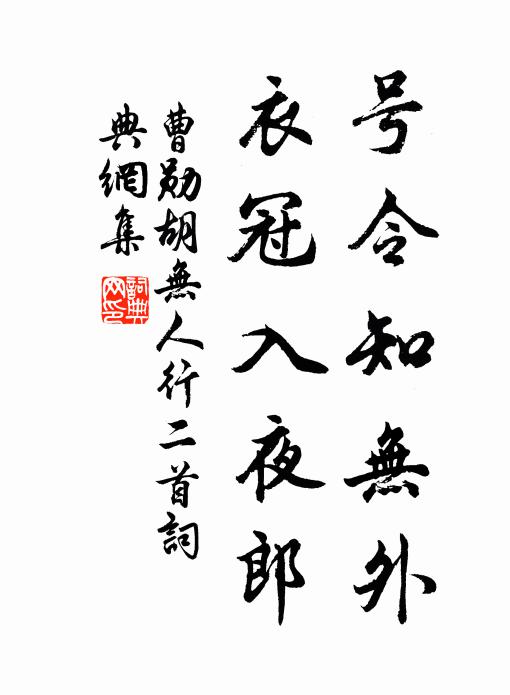 号令知無外
衣冠入夜郎
曹勛胡無人行二首詞
典網集
詞典
网印